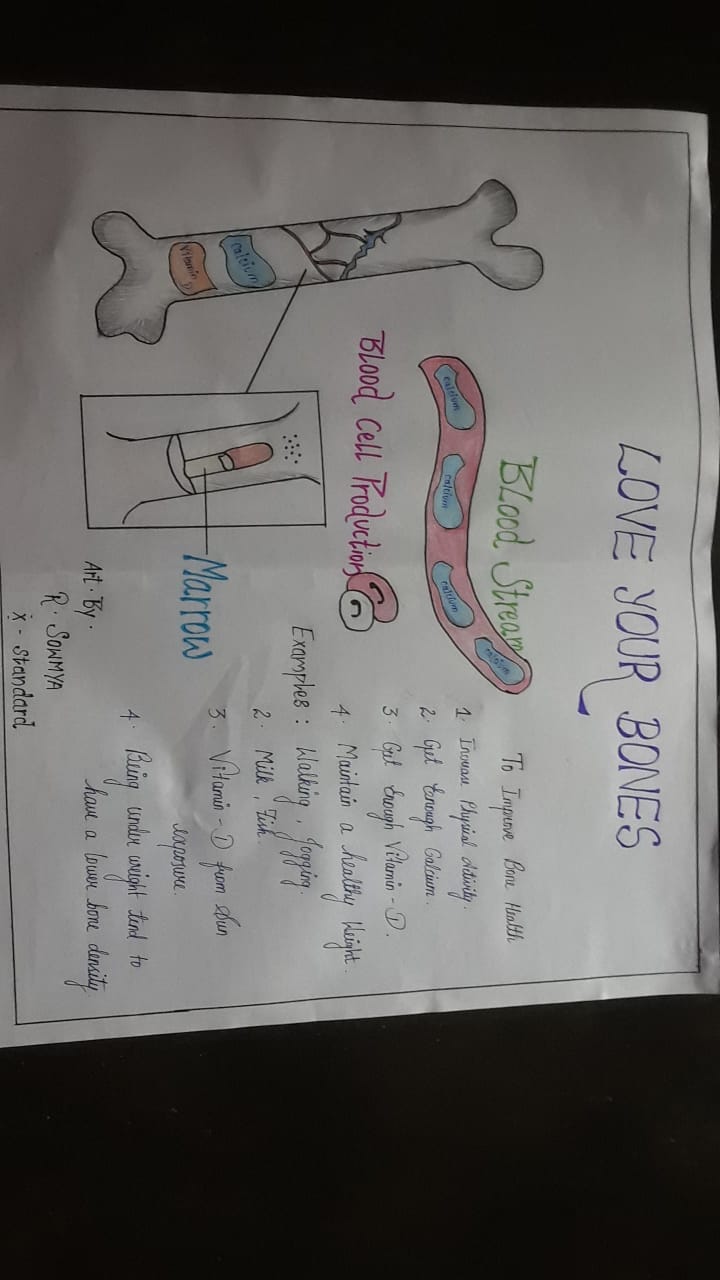 LOVE YOUR BONES
BLOOD Stream
calcium
calcium
calcium
calcium
Blood Cell Production
calcium
Vitamin D
MARROW
To Improve Bone Health
1. Increase Physical Activity.
2. Get Enough Calcium.
3. Get Enough Vitamin - D.
4. Maintain a healthy Weight.
Examples : Walking, Jogging.
2. Milk, Fish.
3. Vitamin - D from Sun
exposure.
4. Being under weight tend to
have a lower bone density.
Art. By.
R. SOWMYA
X - Standard